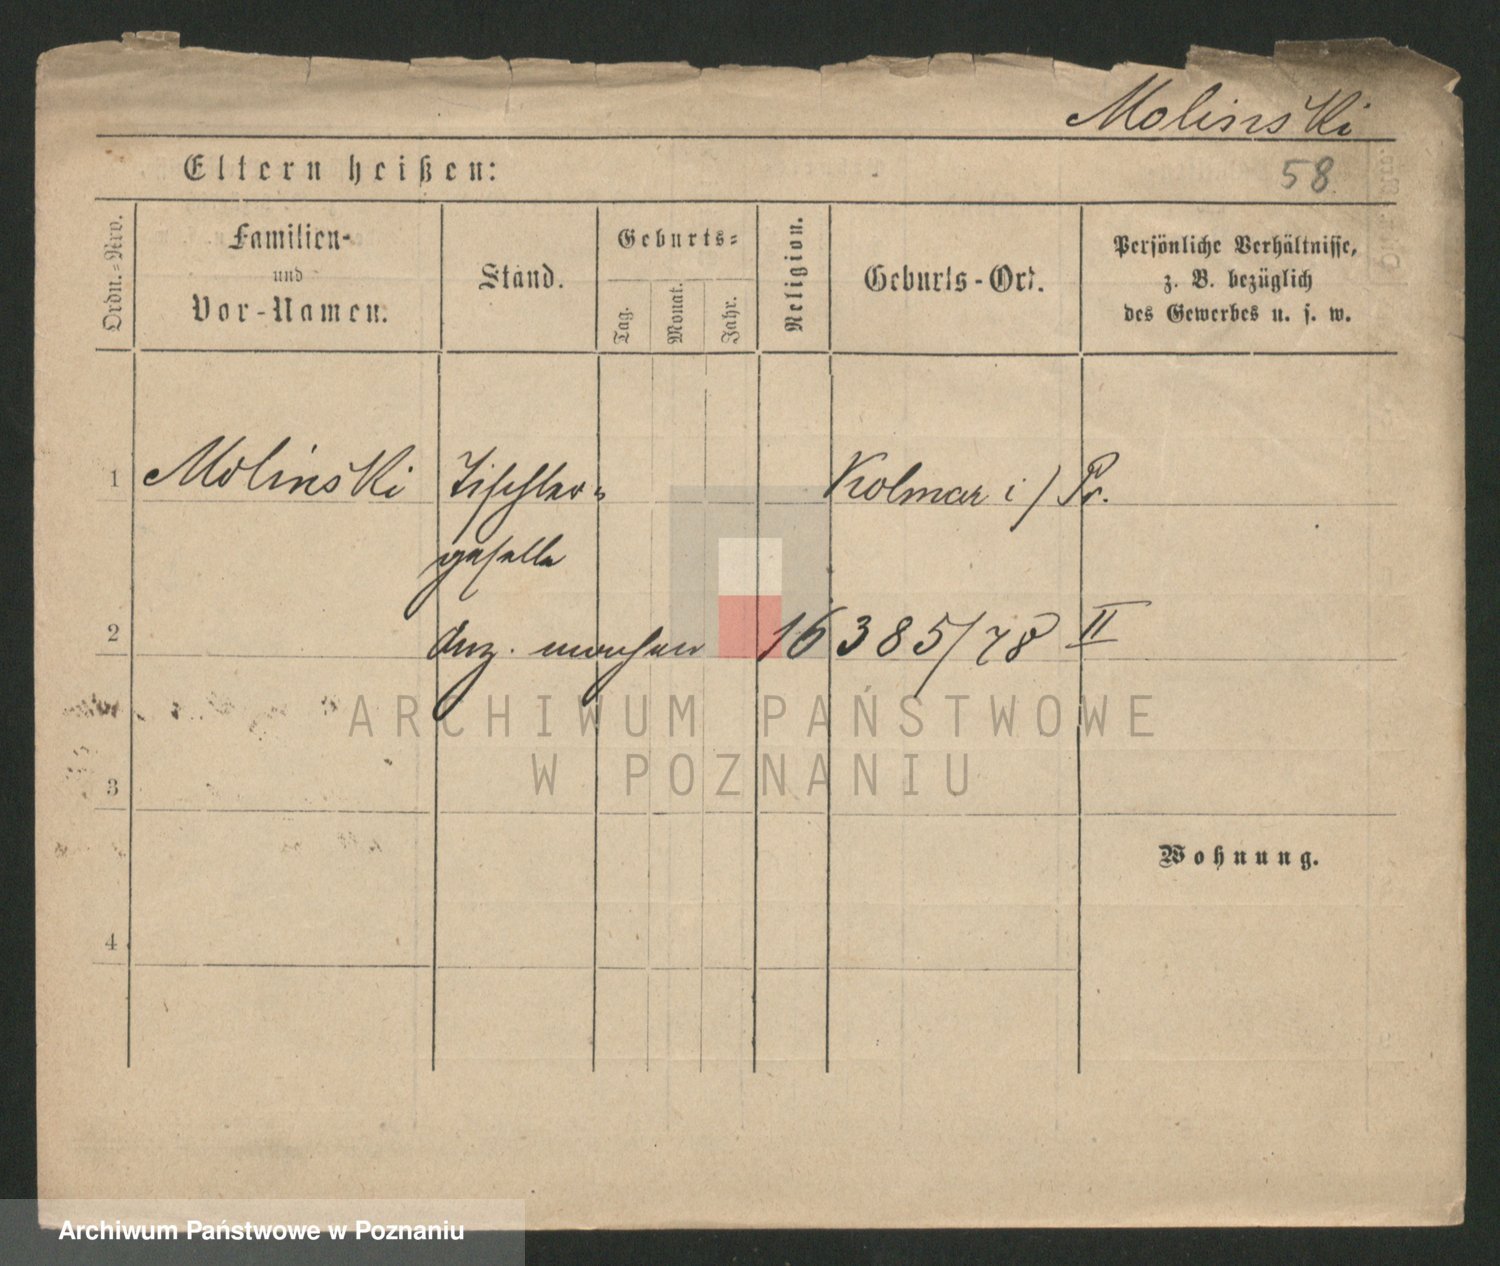 Molinski
Eltern heißen:
58
Ordn.-Nro.
Familien-
und
Vor-Namen.
Stand.
Geburts-
Tag.
Monat.
Jahr.
Religion.
Geburts-Ort.
Persönliche Verhältnisse,
z. B. bezüglich
des Gewerbes u. s. w.
1 Molinski Tischler- Kolmar i/ Pr.
geselle
2 16385/78 II
ARCHIWUM PAŃSTWOWE
W POZNANIU
3
Wohnung.
4
Archiwum Państwowe w Poznaniu